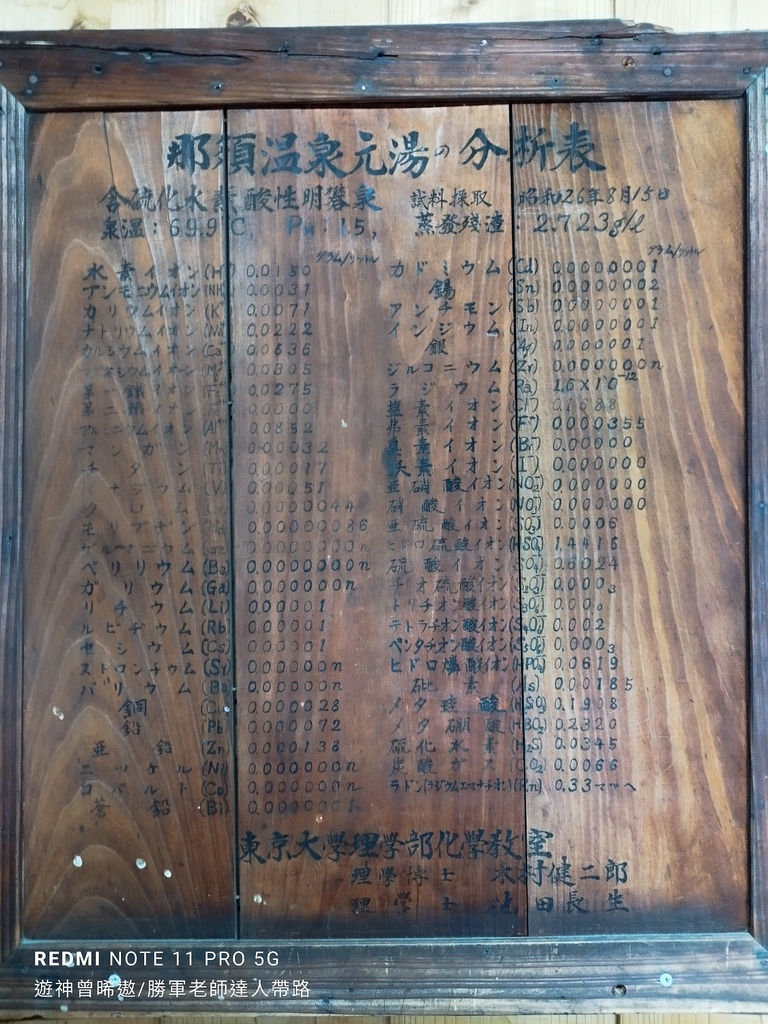 那須温泉元湯の分析表
含硫化水素酸性明礬泉
泉温：69.9℃, PH：1.5,
試料採取 昭和26年8月15日
蒸發残渣：2.723g/l
グラム/リットル
水素イオン (H 0.0150
アンモニウムイオン (NH 0.0031
カリウムイオン (K 0.0071
ナトリウムイオン (Na 0.0222
カルシウムイオン (Ca 0.0636
マグネシウムイオン (M 0.0305
第一鐵イオン (F 0.0275
第二鐵イオン 0.0000
アルミニウムイオン (Al 0.0852
マンガン (Mn 0.00032
チタン (Ti 0.00017
バナヂウム (V) 0.00051
0.0000044
モリブデン (Mo 0.0000086
ゲルマニウム 0.000000n
ベリリウム 0.000000n
ガリウム (Ga) 0.00000n
リチウム (Li) 0.00001
ルビヂウム (Rb) 0.00001
セシウム (Cs) 0.00001
ストロンチウム (Sr) 0.00000n
バリウム (Ba) 0.00000n
銅 (Cu) 0.000028
鉛 (Pb) 0.000072
亜鉛 (Zn) 0.000138
ニッケル (Ni) 0.000000n
コバルト (Co) 0.000000n
蒼鉛 (Bi) 0.0000001
グラム/リットル
カドミウム (Cd) 0.0000001
錫 (Sn) 0.0000002
アンチモン (Sb) 0.0000001
インジウム (In) 0.0000001
銀 0.000001
ジルコニウム (Zr) 0.000000n
ラジウム (Ra) 1.6×10⁻¹²
塩素イオン (Cl⁻) 0.1688
弗素イオン (F⁻) 0.0000355
臭素イオン (Br⁻) 0.00000
沃素イオン (I⁻) 0.000000
亜硝酸イオン (NO₂⁻) 0.000000
硝酸イオン (NO₃⁻) 0.000000
亜硫酸イオン 0.0006
ヒドロ硫酸イオン (HSO₄ 1.4416
硫酸イオン (SO₄ 0.6024
チオ硫酸イオン (S₂O₃ 0.0003
トリチオン酸イオン (S₃O₆ 0.000
テトラチオン酸イオン (S₄O₆ 0.002
ペンタチオン酸イオン (S₅O₆ 0.0003
ヒドロ燐酸イオン (HPO₄ 0.0619
砒素 (As) 0.00185
メタ珪酸 0.1908
メタ硼酸 (HBO₂) 0.2320
硫化水素 (H₂S) 0.0345
炭酸ガス (CO₂ 0.0066
ラドン(ラジウムエマナチオン) (Rn) 0.33マッヘ
東京大學理學部化學教室
理學博士 木村健二郎
理学士 池田長生
REDMI NOTE 11 PRO 5G
遊神曾晞遨/勝軍老師達人帶路